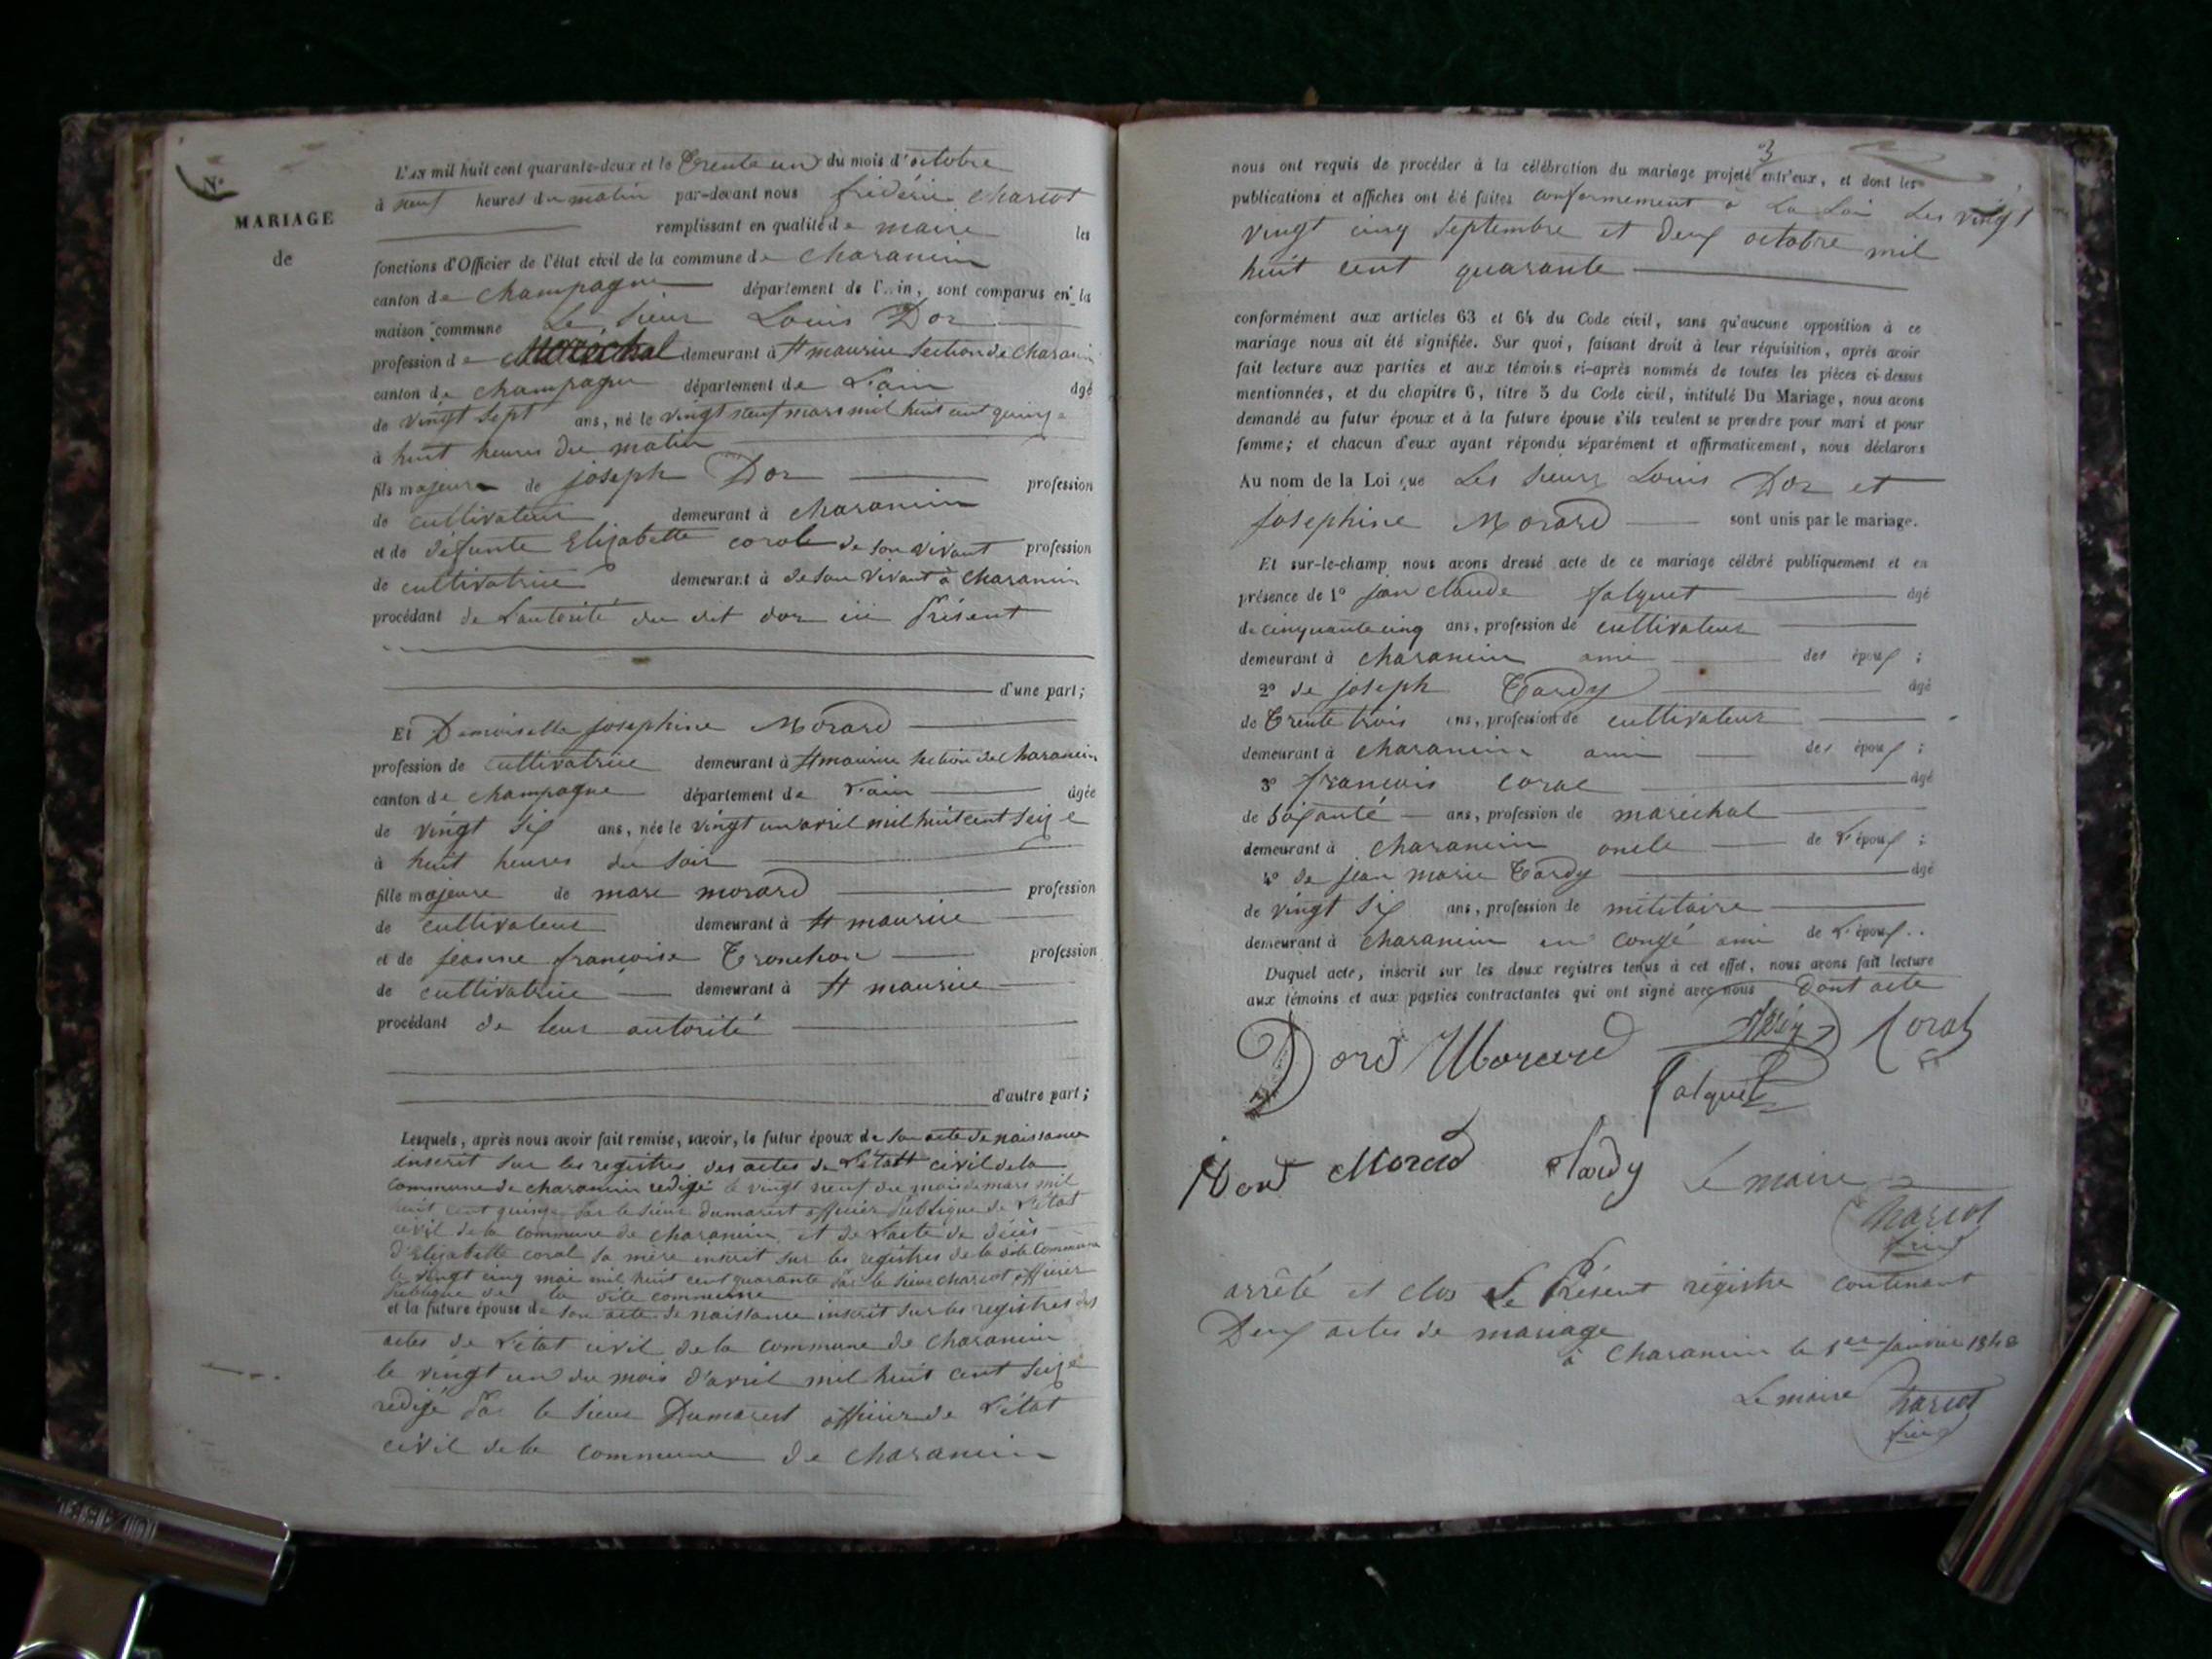 N°
MARIAGE
de
L'AN mil huit cent quarante-deux et le Trente un du mois d'octobre
à neuf heures du matin par-devant nous frédéric charcot
remplissant en qualité de maire les
fonctions d'Officier de l'état civil de la commune de charancin
canton de champagne département de l'Ain, sont comparus en la
maison commune Le sieur Louis Dor
profession de Maréchal demeurant à St maurice section de charancin
canton de champagne département de L'ain âgé
de vingt sept ans, né le vingt neuf mars mil huit cent quinze
à huit heures du matin
fils majeur de joseph Dor profession
de cultivateur demeurant à charancin
et de défunte Elizabette coral de son vivant profession
de cultivatrice demeurant à de son vivant à charancin
procédant de L'autorité du dit dor ici présent
d'une part;
Et Demoiselle josephine Morard
profession de cultivatrice demeurant à St maurice section de charancin
canton de champagne département de L'ain âgée
de vingt six ans, née le vingt un avril mil huit cent seize
à huit heures du soir
fille majeure de marc morard profession
de cultivateur demeurant à St maurice
et de jeanne françoise Tronchon profession
de cultivatrice demeurant à St maurice
procédant de leur autorité
d'autre part;
Lesquels, après nous avoir fait remise, savoir, le futur époux de son acte de naissance
inscrit sur les registres des actes de L'état civil de la
commune de charancin redigé le vingt neuf du mois de mars mil
huit cent quinze par le sieur dumarest officier publique de L'état
civil de la commune de charancin et de L'acte de décès
d'Elisabette coral sa mère inscrit sur les registres de la dite commune
le vingt cinq mai mil huit cent quarante par le sieur charcot officier
publique de la dite commune
et la future épouse de son acte de naissance inscrit sur les registres des
actes de L'état civil de la commune de charancin
le vingt un du mois d'avril mil huit cent seize
redigé par le sieur Dumarest officier de L'état
civil de la commune de charancin
3
nous ont requis de procéder à la célébration du mariage projeté entr'eux, et dont les
publications et affiches ont été faites conformement à La Loi les vingt
vingt cinq septembre et deux octobre mil
huit cent quarante
conformément aux articles 63 et 64 du Code civil, sans qu'aucune opposition à ce
mariage nous ait été signifiée. Sur quoi, faisant droit à leur réquisition, après avoir
fait lecture aux parties et aux témoins ci-après nommés de toutes les pièces ci-dessus
mentionnées, et du chapitre 6, titre 5 du Code civil, intitulé Du Mariage, nous avons
demandé au futur époux et à la future épouse s'ils veulent se prendre pour mari et pour
femme; et chacun d'eux ayant répondu séparément et affirmativement, nous déclarons
Au nom de la Loi que Les sieurs Louis Dor et
Josephine Morard sont unis par le mariage.
Et sur-le-champ nous avons dressé acte de ce mariage célébré publiquement et en
présence de 1° jean claude falquet âgé
de cinquante cinq ans, profession de cultivateur
demeurant à charancin ami des époux;
2° de joseph Tardy âgé
de Trente trois ans, profession de cultivateur
demeurant à charancin ami des époux;
3° françois coral âgé
de soixante ans, profession de maréchal
demeurant à charancin oncle de L'époux;
4° de jean marie Tardy âgé
de vingt six ans, profession de militaire
demeurant à charancin en congé ami de L'époux.
Duquel acte, inscrit sur les deux registres tenus à cet effet, nous avons fait lecture
aux témoins et aux parties contractantes qui ont signé avec nous Dont acte
Dord Morard Coral
falquet
Dord Morard Tardy Le maire
Charcot
arrêté et clos Le Présent régistre contenant
Deux actes de mariage
à Charancin le 1er Janvier 1843
Le maire Charcot